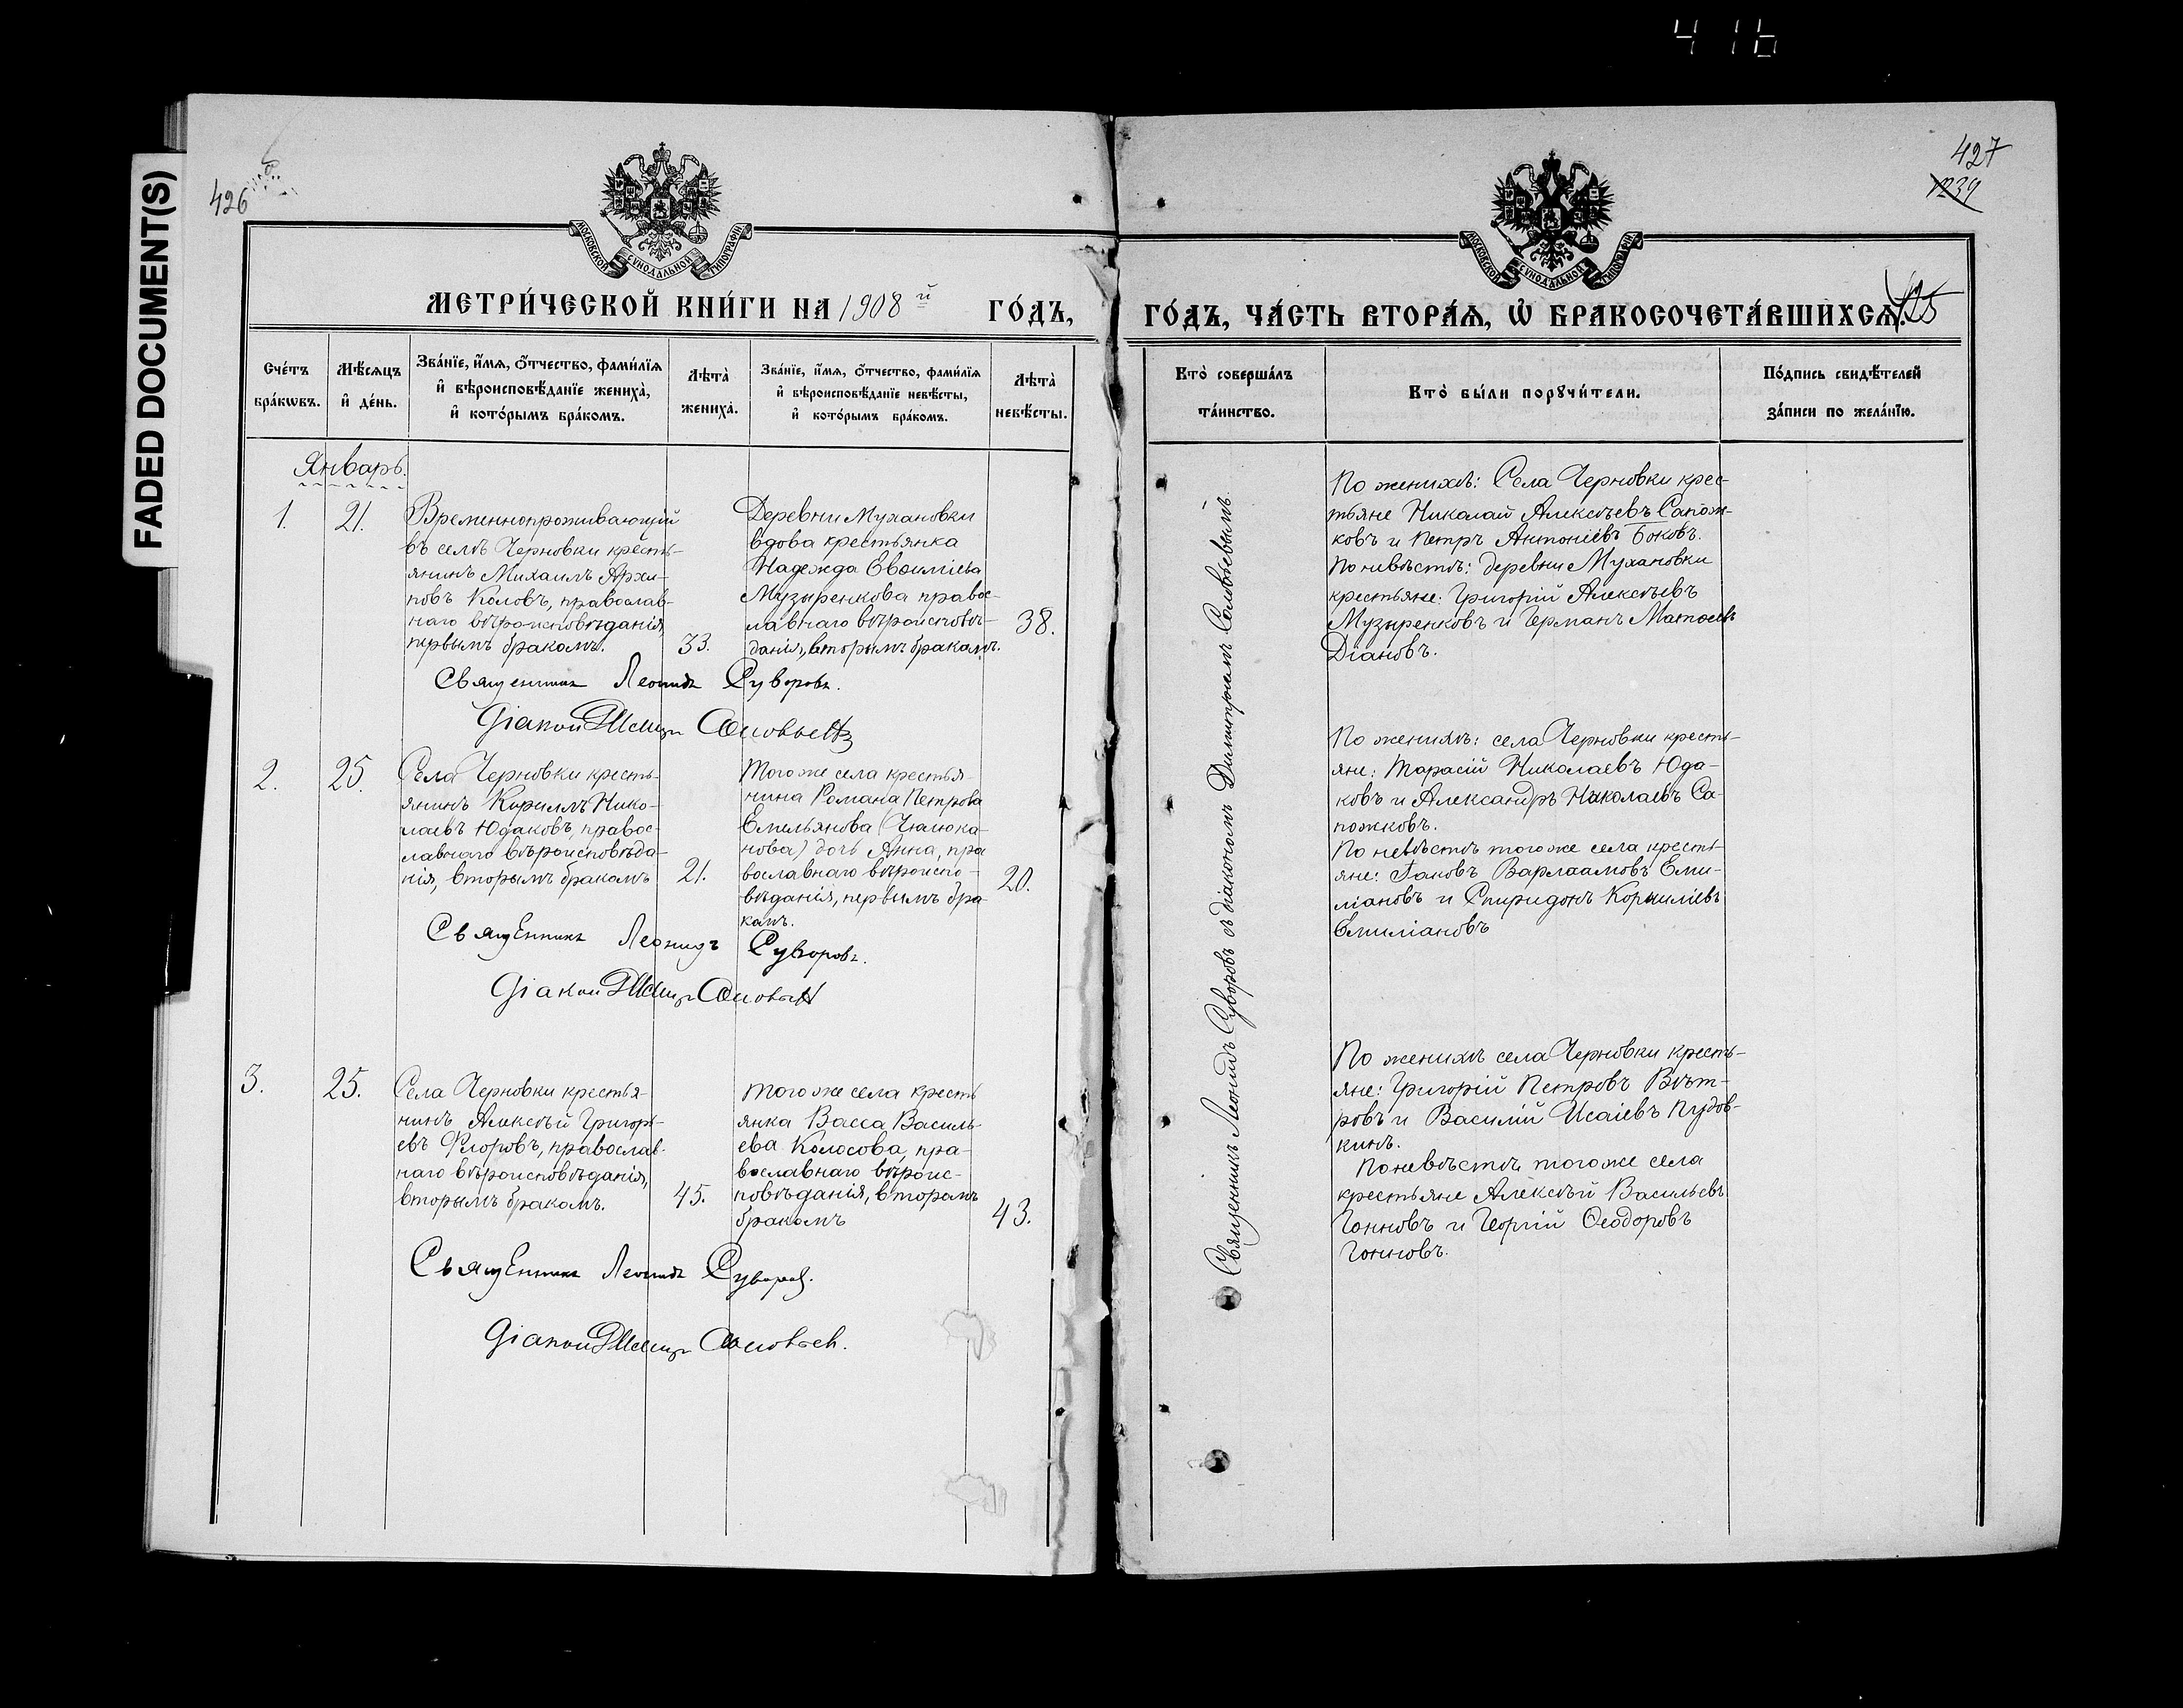 416
FADED DOCUMENT(S)
426
МОСКОВСКОЙ СѴНОДАЛЬНОЙ ТИПОГРАФІИ
МЕТРИ́ЧЕСКОЙ КНИ́ГИ НА 1908й ГО́ДЪ,
Сче́тъ бра́кѡвъ.
Мѣ́сѧцъ и҆ де́нь.
Зва́нїе, и҆́мѧ, ѻ҆́тчество, фами́лїѧ
и҆ вѣроисповѣ́данїе жениха̀,
и҆ кото́рымъ бра́комъ.
Лѣта̀ жениха̀.
Зва́нїе, и҆́мѧ, ѻ҆́тчество, фами́лїѧ
и҆ вѣроисповѣ́данїе невѣ́сты,
и҆ кото́рымъ бра́комъ.
Лѣта̀ невѣ́сты.
Январь.
1.
21.
Временнопроживающій
въ селѣ Черновки кресть-
янинъ Михаилъ Архи-
повъ Коловъ, православ-
наго вѣроисповѣданія,
первымъ бракомъ.
33.
Деревни Мухановки
вдова крестьянка
Надежда Евѳиміева
Музыренкова правос-
лавнаго вѣроисповѣ-
данія, вторымъ бракомъ.
38.
Священникъ Леонидъ Суворовъ.
Діаконъ Димитр Соловьевъ
2.
25.
Села Черновки кресть-
янинъ Кириллъ Нико-
лаевъ Юдаковъ, правос-
лавнаго вѣроисповѣда-
нія, вторымъ бракомъ
21.
Того же села крестья-
нина Романа Петрова
Емельянова (Чалюка-
нова) дочь Анна, пра
вославнаго вѣроиспо-
вѣданія, первымъ бра-
комъ.
20.
Священникъ Леонидъ Суворовъ.
Діаконъ Димитр Соловьевъ
3.
25.
Села Черновки крестья-
нинъ Алексѣй Григорь-
евъ Флоровъ, православ-
наго вѣроисповѣданія,
вторымъ бракомъ.
45.
Того же села кресть
янка Васса Василь-
ева Колосова, пра-
вославнаго вѣроис-
повѣданія, вторымъ
бракомъ
43.
Священникъ Леонидъ Суворовъ.
Діаконъ Димитр Соловьев.
427
1239
МОСКОВСКОЙ СѴНОДАЛЬНОЙ ТИПОГРАФІИ
ГО́ДЪ, ЧА́СТЬ ВТОРА́Ѧ, Ѡ҆ БРАКОСОЧЕТА́ВШИХСѦ.
Кто̀ соверша́лъ та́инство.
Кто̀ бы́ли порꙋчи́тели.
По́дпись свидѣ́телей за́писи по жела́нїю.
Священникъ Леонидъ Суворовъ съ діакономъ Димитріемъ Соловьевымъ
По женихѣ: Села Черновки крес-
тьяне Николай Алексѣевъ Сапож-
ковъ и Петръ Антоніевъ Боковъ.
По невѣстѣ: деревни Мухановки
крестьяне: Григорій Алексѣевъ
Музыренковъ и Германъ Матѳеевъ
Діановъ.
По женихѣ: села Черновки кресть-
яне: Тарасій Николаевъ Юда-
ковъ и Александръ Николаевъ Са-
пожковъ.
По невѣстѣ того же села кресть-
яне: Іаковъ Варлаамовъ Еми-
ліановъ и Спиридонъ Корниліевъ
Емиліановъ
По женихѣ села Черновки кресть-
яне: Григорій Петровъ Вѣт-
ровъ и Василій Исаіевъ Пудов-
кинъ.
По невѣстѣ того же села
крестьяне Алексѣй Васильевъ
Гонновъ и Георгій Ѳеодоровъ
Гонновъ.